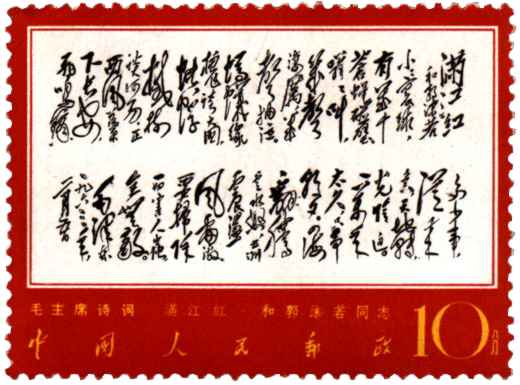 满江红
和郭沫若
小小寰球,
有几个
苍蝇碰壁
嗡嗡叫
几声
凄厉几
声抽泣
蚂蚁缘
槐夸大国
蚍蜉
撼树
谈何易正
西风落叶
下长安
飞鸣镝
多少事
从来急
天地转
光阴迫
一万年
太久只争
朝夕四海
翻腾
云水怒五洲
震荡
风雷激
要扫除
一切害人虫
全无敌
毛泽东
毛主席诗词 满江红·和郭沫若同志
中国人民邮政 10分